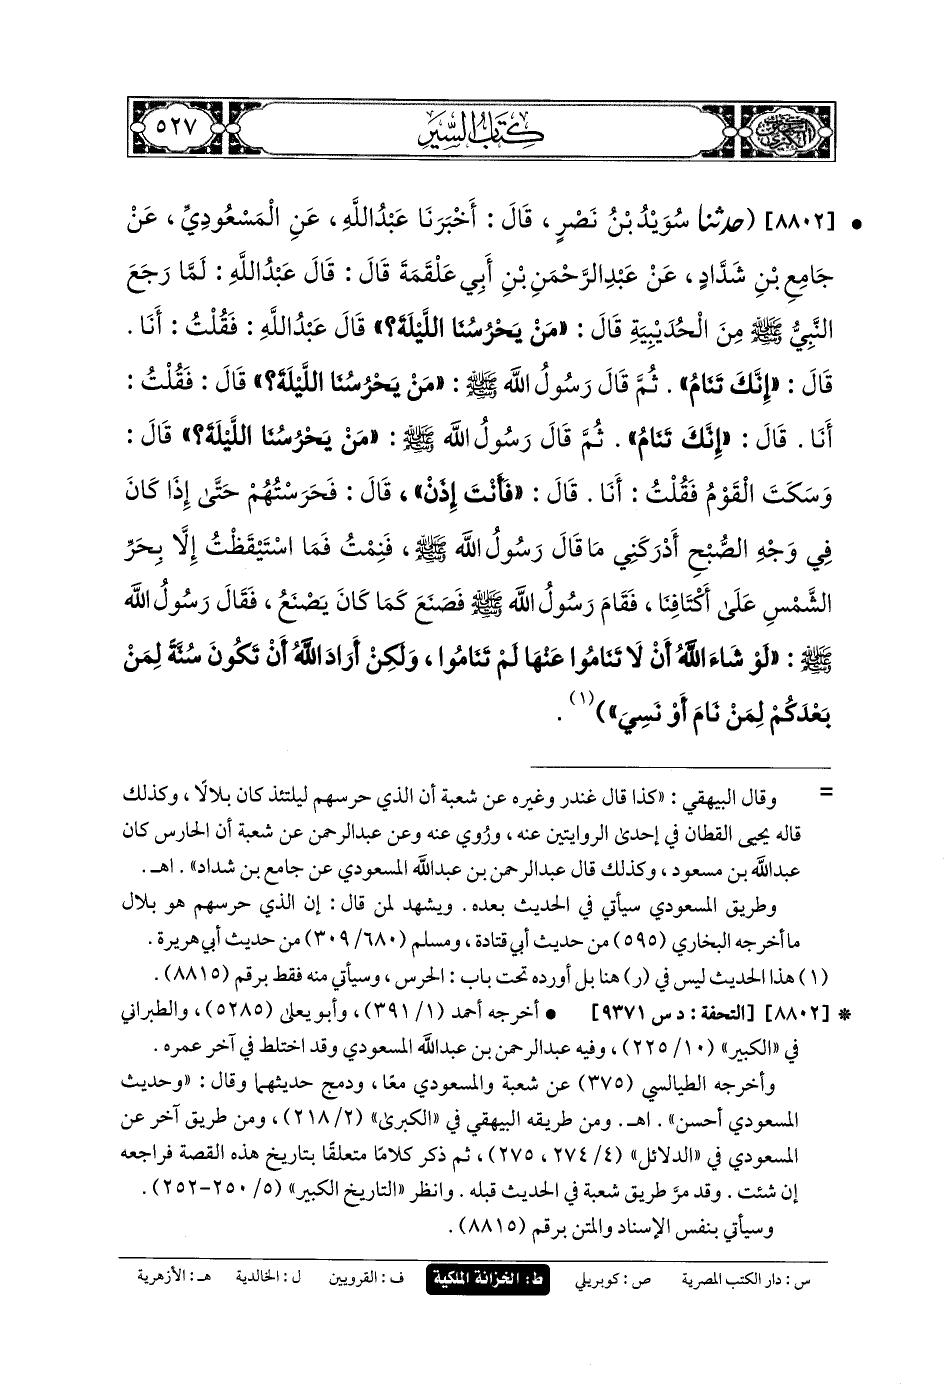 كتاب السير
٥٢٧
• [٨٨٠٢] (حدثنا سُوَيْدُ بْنُ نَصْرٍ ، قَالَ : أَخْبَرَنَا عَبْدُاللَّهِ ، عَنِ الْمَسْعُودِيِّ ، عَنْ
جَامِعِ بْنِ شَدَّادٍ ، عَنْ عَبْدِالرَّحْمَنِ بْنِ أَبِي عَلْقَمَةَ قَالَ : قَالَ عَبْدُاللَّهِ : لَمَّا رَجَعَ
النَّبِيُّ ﷺ مِنَ الْحُدَيْبِيَةِ قَالَ : «مَنْ يَحْرُسُنَا اللَّيْلَةَ؟» قَالَ عَبْدُاللَّهِ : فَقُلْتُ : أَنَا .
قَالَ : «إِنَّكَ تَنَامُ» . ثُمَّ قَالَ رَسُولُ اللَّه ﷺ : «مَنْ يَحْرُسُنَا اللَّيْلَةَ؟» قَالَ : فَقُلْتُ :
أَنَا . قَالَ : «إِنَّكَ تَنَامُ» . ثُمَّ قَالَ رَسُولُ اللَّه ﷺ : «مَنْ يَحْرُسُنَا اللَّيْلَةَ؟» قَالَ :
وَسَكَتَ الْقَوْمُ فَقُلْتُ : أَنَا . قَالَ : «فَأَنْتَ إِذَنْ» ، قَالَ : فَحَرَسْتُهُمْ حَتَّى إِذَا كَانَ
فِي وَجْهِ الصُّبْحِ أَدْرَكَنِي مَا قَالَ رَسُولُ اللَّه ﷺ ، فَنِمْتُ فَمَا اسْتَيْقَظْتُ إِلَّا بِحَرِّ
الشَّمْسِ عَلَى أَكْتَافِنَا ، فَقَامَ رَسُولُ اللَّه ﷺ فَصَنَعَ كَمَا كَانَ يَصْنَعُ ، فَقَالَ رَسُولُ اللَّه
ﷺ : «لَوْ شَاءَ اللَّهُ أَنْ لَا تَنَامُوا عَنْهَا لَمْ تَنَامُوا ، وَلَكِنْ أَرَادَ اللَّهُ أَنْ تَكُونَ سُنَّةً لِمَنْ
بَعْدَكُمْ لِمَنْ نَامَ أَوْ نَسِيَ»)(١) .
= وقال البيهقي : «كذا قال غندر وغيره عن شعبة أن الذي حرسهم ليلتئذ كان بلالًا ، وكذلك
قاله يحيى القطان في إحدى الروايتين عنه ، ورُوي عنه وعن عبدالرحمن عن شعبة أن الحارس كان
عبدالله بن مسعود ، وكذلك قال عبدالرحمن بن عبدالله المسعودي عن جامع بن شداد» . اهـ .
وطريق المسعودي سيأتي في الحديث بعده . ويشهد لمن قال : إن الذي حرسهم هو بلال
ما أخرجه البخاري (٥٩٥) من حديث أبي قتادة ، ومسلم (٣٠٩/٦٨٠) من حديث أبي هريرة .
(١) هذا الحديث ليس في (ر) هنا بل أورده تحت باب : الحرس ، وسيأتي منه فقط برقم (٨٨١٥) .
* [٨٨٠٢] [التحفة : د س ٩٣٧١] • أخرجه أحمد (١/ ٣٩١) ، وأبو يعلى (٥٢٨٥) ، والطبراني
في «الكبير» (١٠/ ٢٢٥) ، وفيه عبدالرحمن بن عبدالله المسعودي وقد اختلط في آخر عمره .
وأخرجه الطيالسي (٣٧٥) عن شعبة والمسعودي معًا ، ودمج حديثهما وقال : «وحديث
المسعودي أحسن» . اهـ . ومن طريقه البيهقي في «الكبرى» (٢/ ٢١٨) ، ومن طريق آخر عن
المسعودي في «الدلائل» (٤/ ٢٧٤ ، ٢٧٥) ، ثم ذكر كلامًا متعلقًا بتاريخ هذه القصة فراجعه
إن شئت . وقد مرَّ طريق شعبة في الحديث قبله . وانظر «التاريخ الكبير» (٥/ ٢٥٠-٢٥٢) .
وسيأتي بنفس الإسناد والمتن برقم (٨٨١٥) .
س : دار الكتب المصرية ص : كوبريلي ط : الخزانة الملكية ف : القرويين ل : الخالدية هـ : الأزهرية